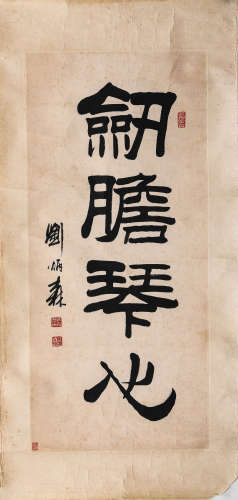 劒膽琴心
劉炳森